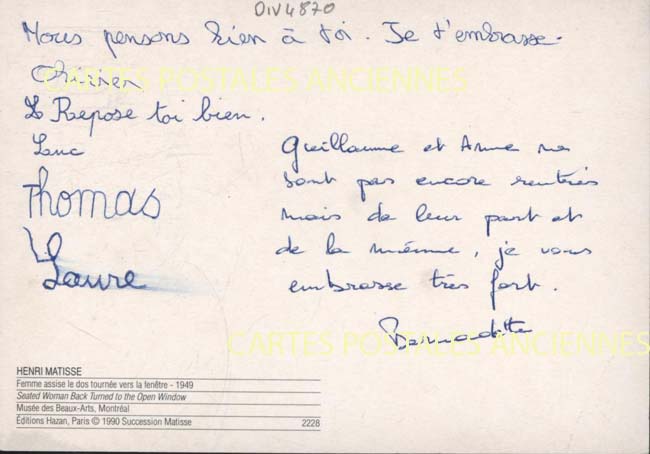 DIV4870
Nous pensons bien à toi. Je t'embrasse.
CARTES POSTALES ANCIENNES
Repose toi bien.
Luc
Thomas
Laure
Guillaume et Anne ne
sont pas encore rentrés
mais de leur part et
de la mienne, je vous
embrasse très fort.
Bernadette
CARTES POSTALES ANCIENNES
HENRI MATISSE
Femme assise le dos tournée vers la fenêtre - 1949
Seated Woman Back Turned to the Open Window
Musée des Beaux-Arts, Montréal
Éditions Hazan, Paris © 1990 Succession Matisse 2228